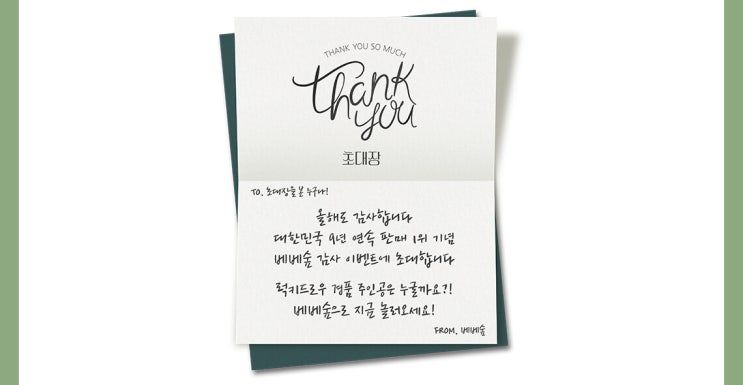 THANK YOU SO MUCH
thank
you
초대장
TO. 초대장을 본 누구나!
올해도 감사합니다
대한민국 9년 연속 판매 1위 기념
베베숲 감사 이벤트에 초대합니다
럭키드로우 경품 주인공은 누굴까요?!
베베숲으로 지금 놀러오세요!
FROM. 베베숲